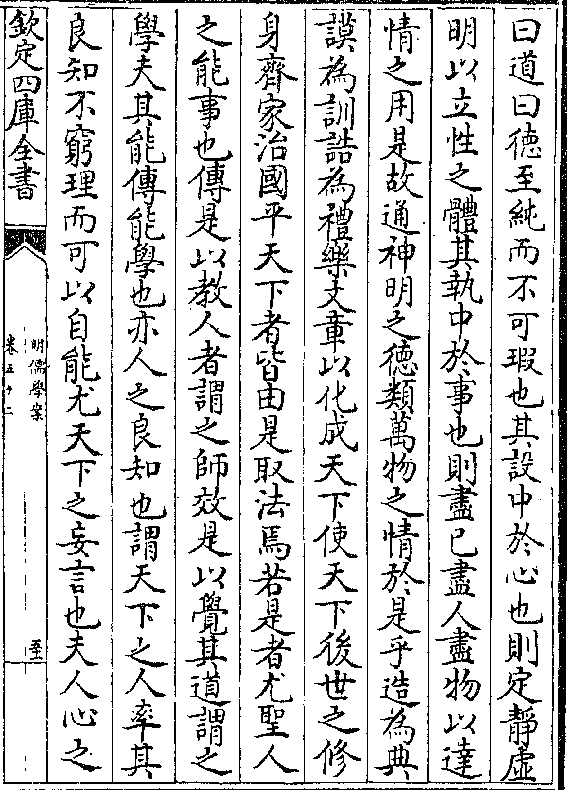 曰道曰德至純而不可瑕也其設中於心也則定靜虛
明以立性之體其執中於事也則盡已盡人盡物以達
情之用是故通神明之德類萬物之情於是乎造為典
謨為訓誥為禮樂文章以化成天下使天下後世之修
身齊家治國平天下者皆由是取法焉若是者尤聖人
之能事也傳是以教人者謂之師效是以覺其道謂之
學夫其能傳能學也亦人之良知也謂天下之人率其
良知不窮理而可以自能尤天下之妄言也夫人心之
欽定四庫全書
明儒學案
卷五十二